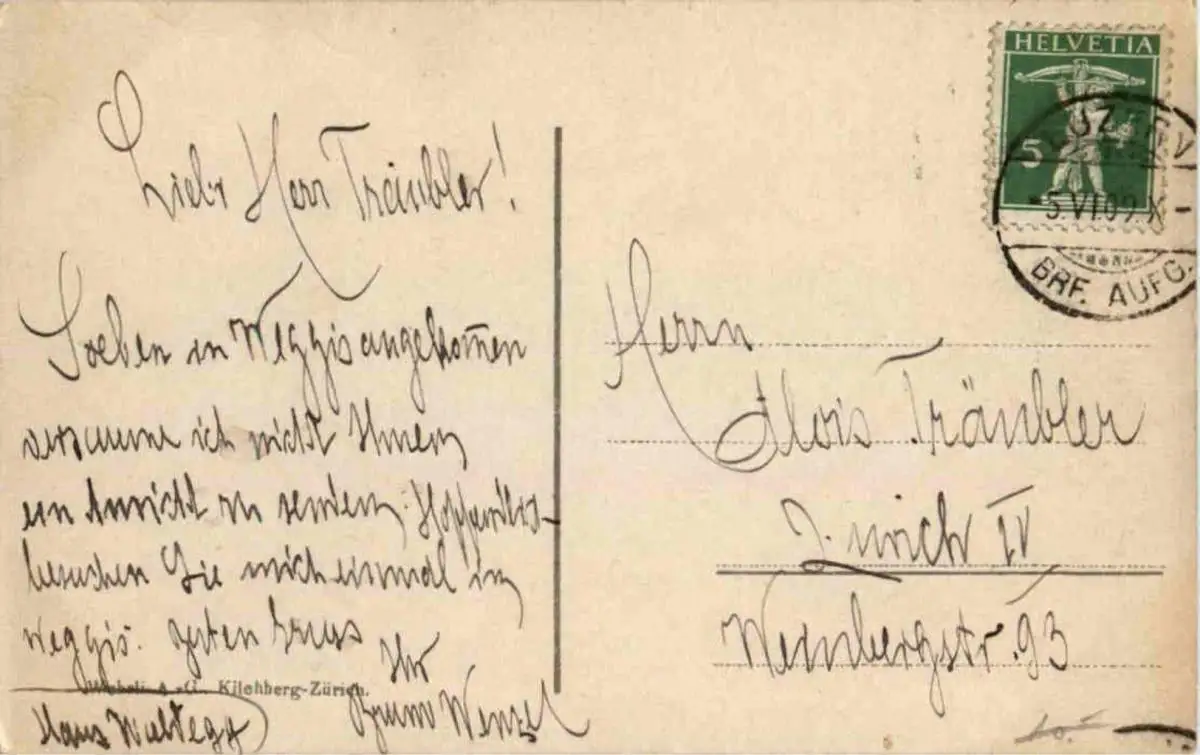 Lieber Herr Träubler!
Soeben in Weggis angekom̄en
versäume ich nicht Ihnen
ein Ansicht zu senden. Hoffentlich
besuchen Sie mich einmal in
Weggis. guten Gruss
Ihr
Bruno Wenzel
Haus
Wehrli A.-G., Kilchberg-Zürich.
HELVETIA
5
LUZERN
-5.VI.09.X-
BRF. AUFG.
Herrn
Alois Träubler
Zürich IV
Weinbergstr. 93